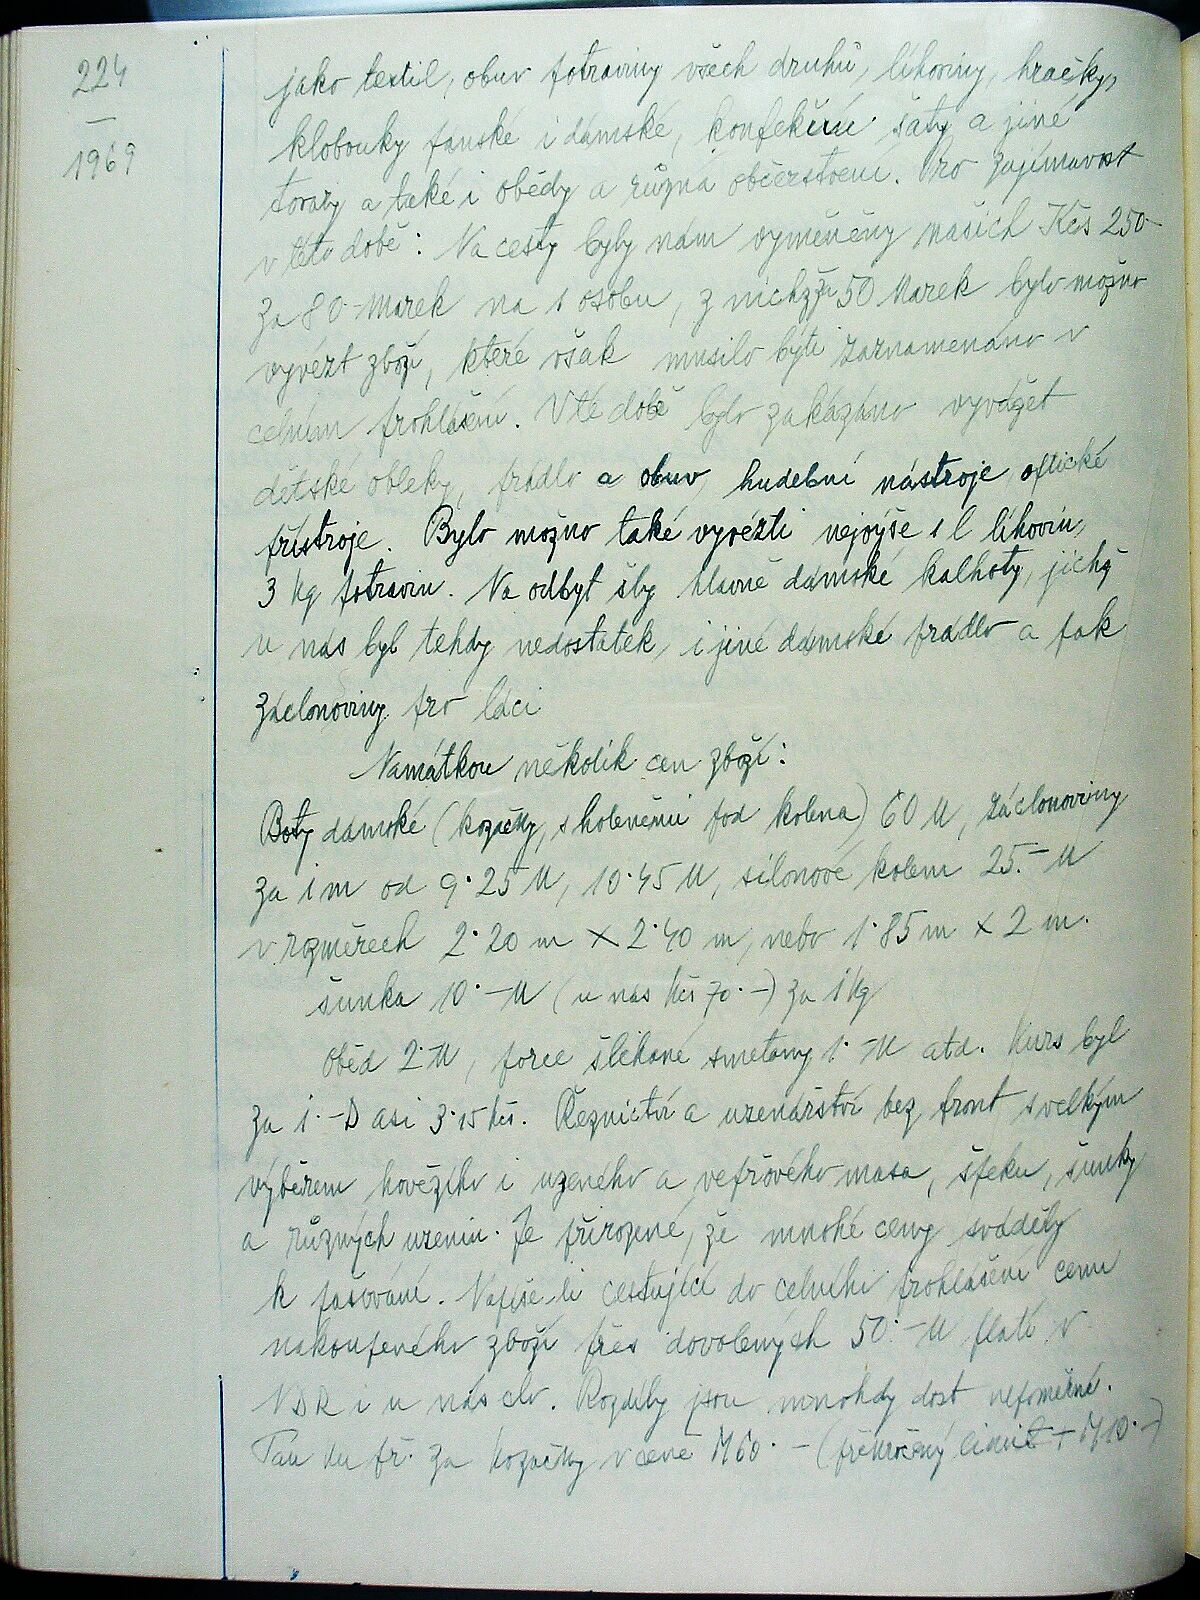 224
—
1969
jako textil, obuv potraviny všech druhů, lihoviny, hračky,
klobouky panské i dámské, konfekční šaty a jiné
tovary a také i obědy a různá občerstvení. Pro zajímavost
v této době: Na cesty byly nám vyměněny našich Kčs 250-
za 80-Marek na 1 osobu, z nichž za 50 Marek bylo možno
vyvézt zboží, které však musilo býti zaznamenáno v
celním prohlášení. V té době bylo zakázáno vyvážet
dětské obleky, prádlo a obuv, hudební nástroje, optické
přístroje. Bylo možno také vyvézti nejvýše 1 l lihovin,
3 kg potravin. Na odbyt šly hlavně dámské kalhoty, jichž
u nás byl tehdy nedostatek, i jiné dámské prádlo a pak
záclonoviny pro láci.
Namátkou několik cen zboží:
Boty dámské (kozačky, s holeněmi pod kolena) 60 M, záclonoviny
za 1 m od 9·25 M, 10·45 M, silonové kolem 25.- M
v rozměrech 2·20 m × 2·40 m, nebo 1·85 m × 2 m.
šunka 10·-M (u nás Kčs 70.-) za 1 kg
Oběd 2·-M, porce šlehané smetany 1·-M atd. Kurs byl
za 1.-D asi 3·15 Kčs. Řeznictví a uzenářství bez front s velkým
výběrem hovězího i uzeného a vepřového masa, špeku, šunky
a různých uzenin. Je přirozené, že mnohé ceny sváděly
k pašování. Napíše-li cestující do celního prohlášení cenu
nakoupeného zboží přes dovolených 50·-M platí v
NDR i u nás clo. Rozdíly jsou mnohdy dost nepoměrné.
Tam ku př. za kozačky v ceně M60·- (překročený limit + M10·-)